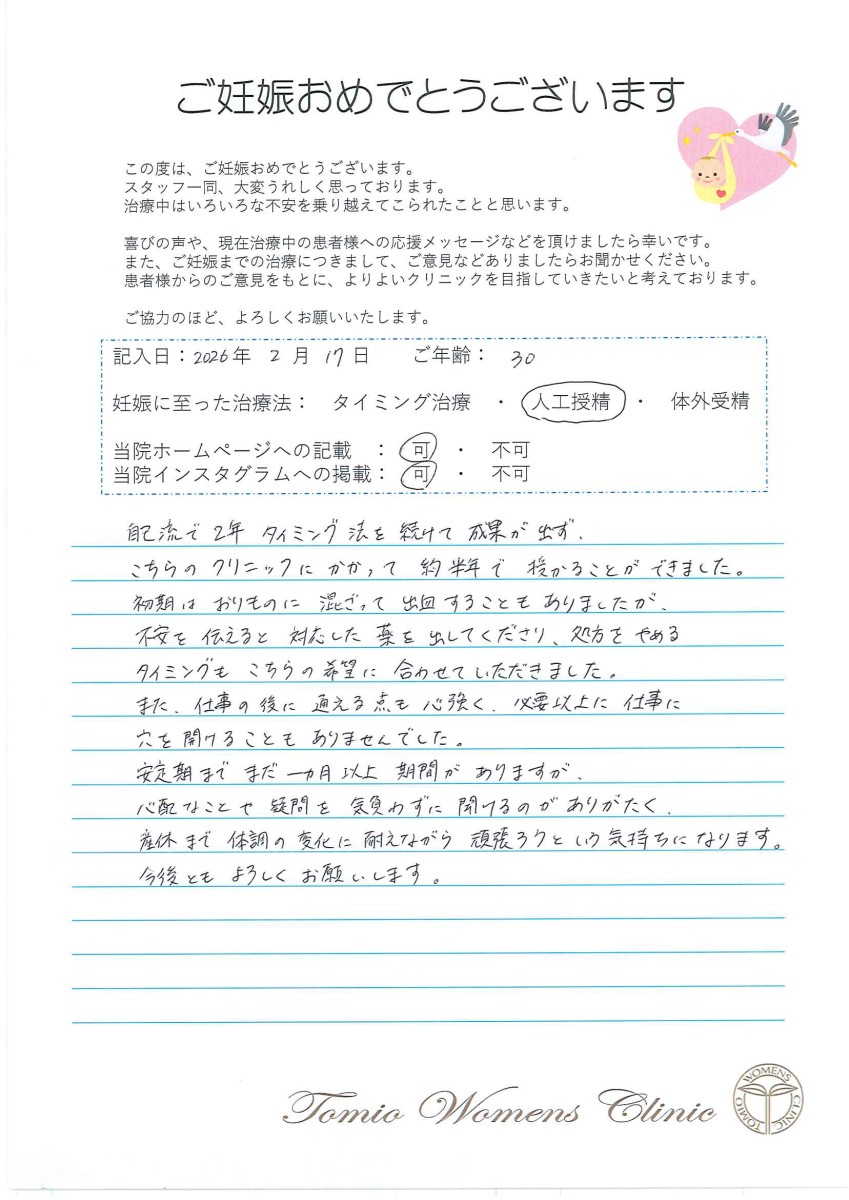 ご妊娠おめでとうございます
この度は、ご妊娠おめでとうございます。
スタッフ一同、大変うれしく思っております。
治療中はいろいろな不安を乗り越えてこられたことと思います。
喜びの声や、現在治療中の患者様への応援メッセージなどを頂けましたら幸いです。
また、ご妊娠までの治療につきまして、ご意見などありましたらお聞かせください。
患者様からのご意見をもとに、よりよいクリニックを目指していきたいと考えております。
ご協力のほど、よろしくお願いいたします。
記入日：2026年 2 月 17日 ご年齢： 30
妊娠に至った治療法： タイミング治療 ・ 人工授精 ・ 体外受精
当院ホームページへの記載 ： 可 ・ 不可
当院インスタグラムへの掲載： 可 ・ 不可
自己流で 2年 タイミング法を 続けて 成果が 出ず、
こちらの クリニックに かかって 約半年で 授かることが できました。
初期は おりものに 混ざって 出血することも ありましたが、
不安を 伝えると 対応した 薬を 出してくださり、処方を やめる
タイミングも こちらの 希望に 合わせていただきました。
また、仕事の 後に 通える 点も 心強く、必要以上に 仕事に
穴を 開けることも ありませんでした。
安定期まで まだ 一カ月 以上 期間が ありますが、
心配なことや 疑問を 気負わずに 聞けるのが ありがたく、
産休まで 体調の 変化に 耐えながら 頑張ろうという 気持ちに なります。
今後とも よろしく お願いします。
Tomio Womens Clinic
TOMIO WOMENS CLINIC